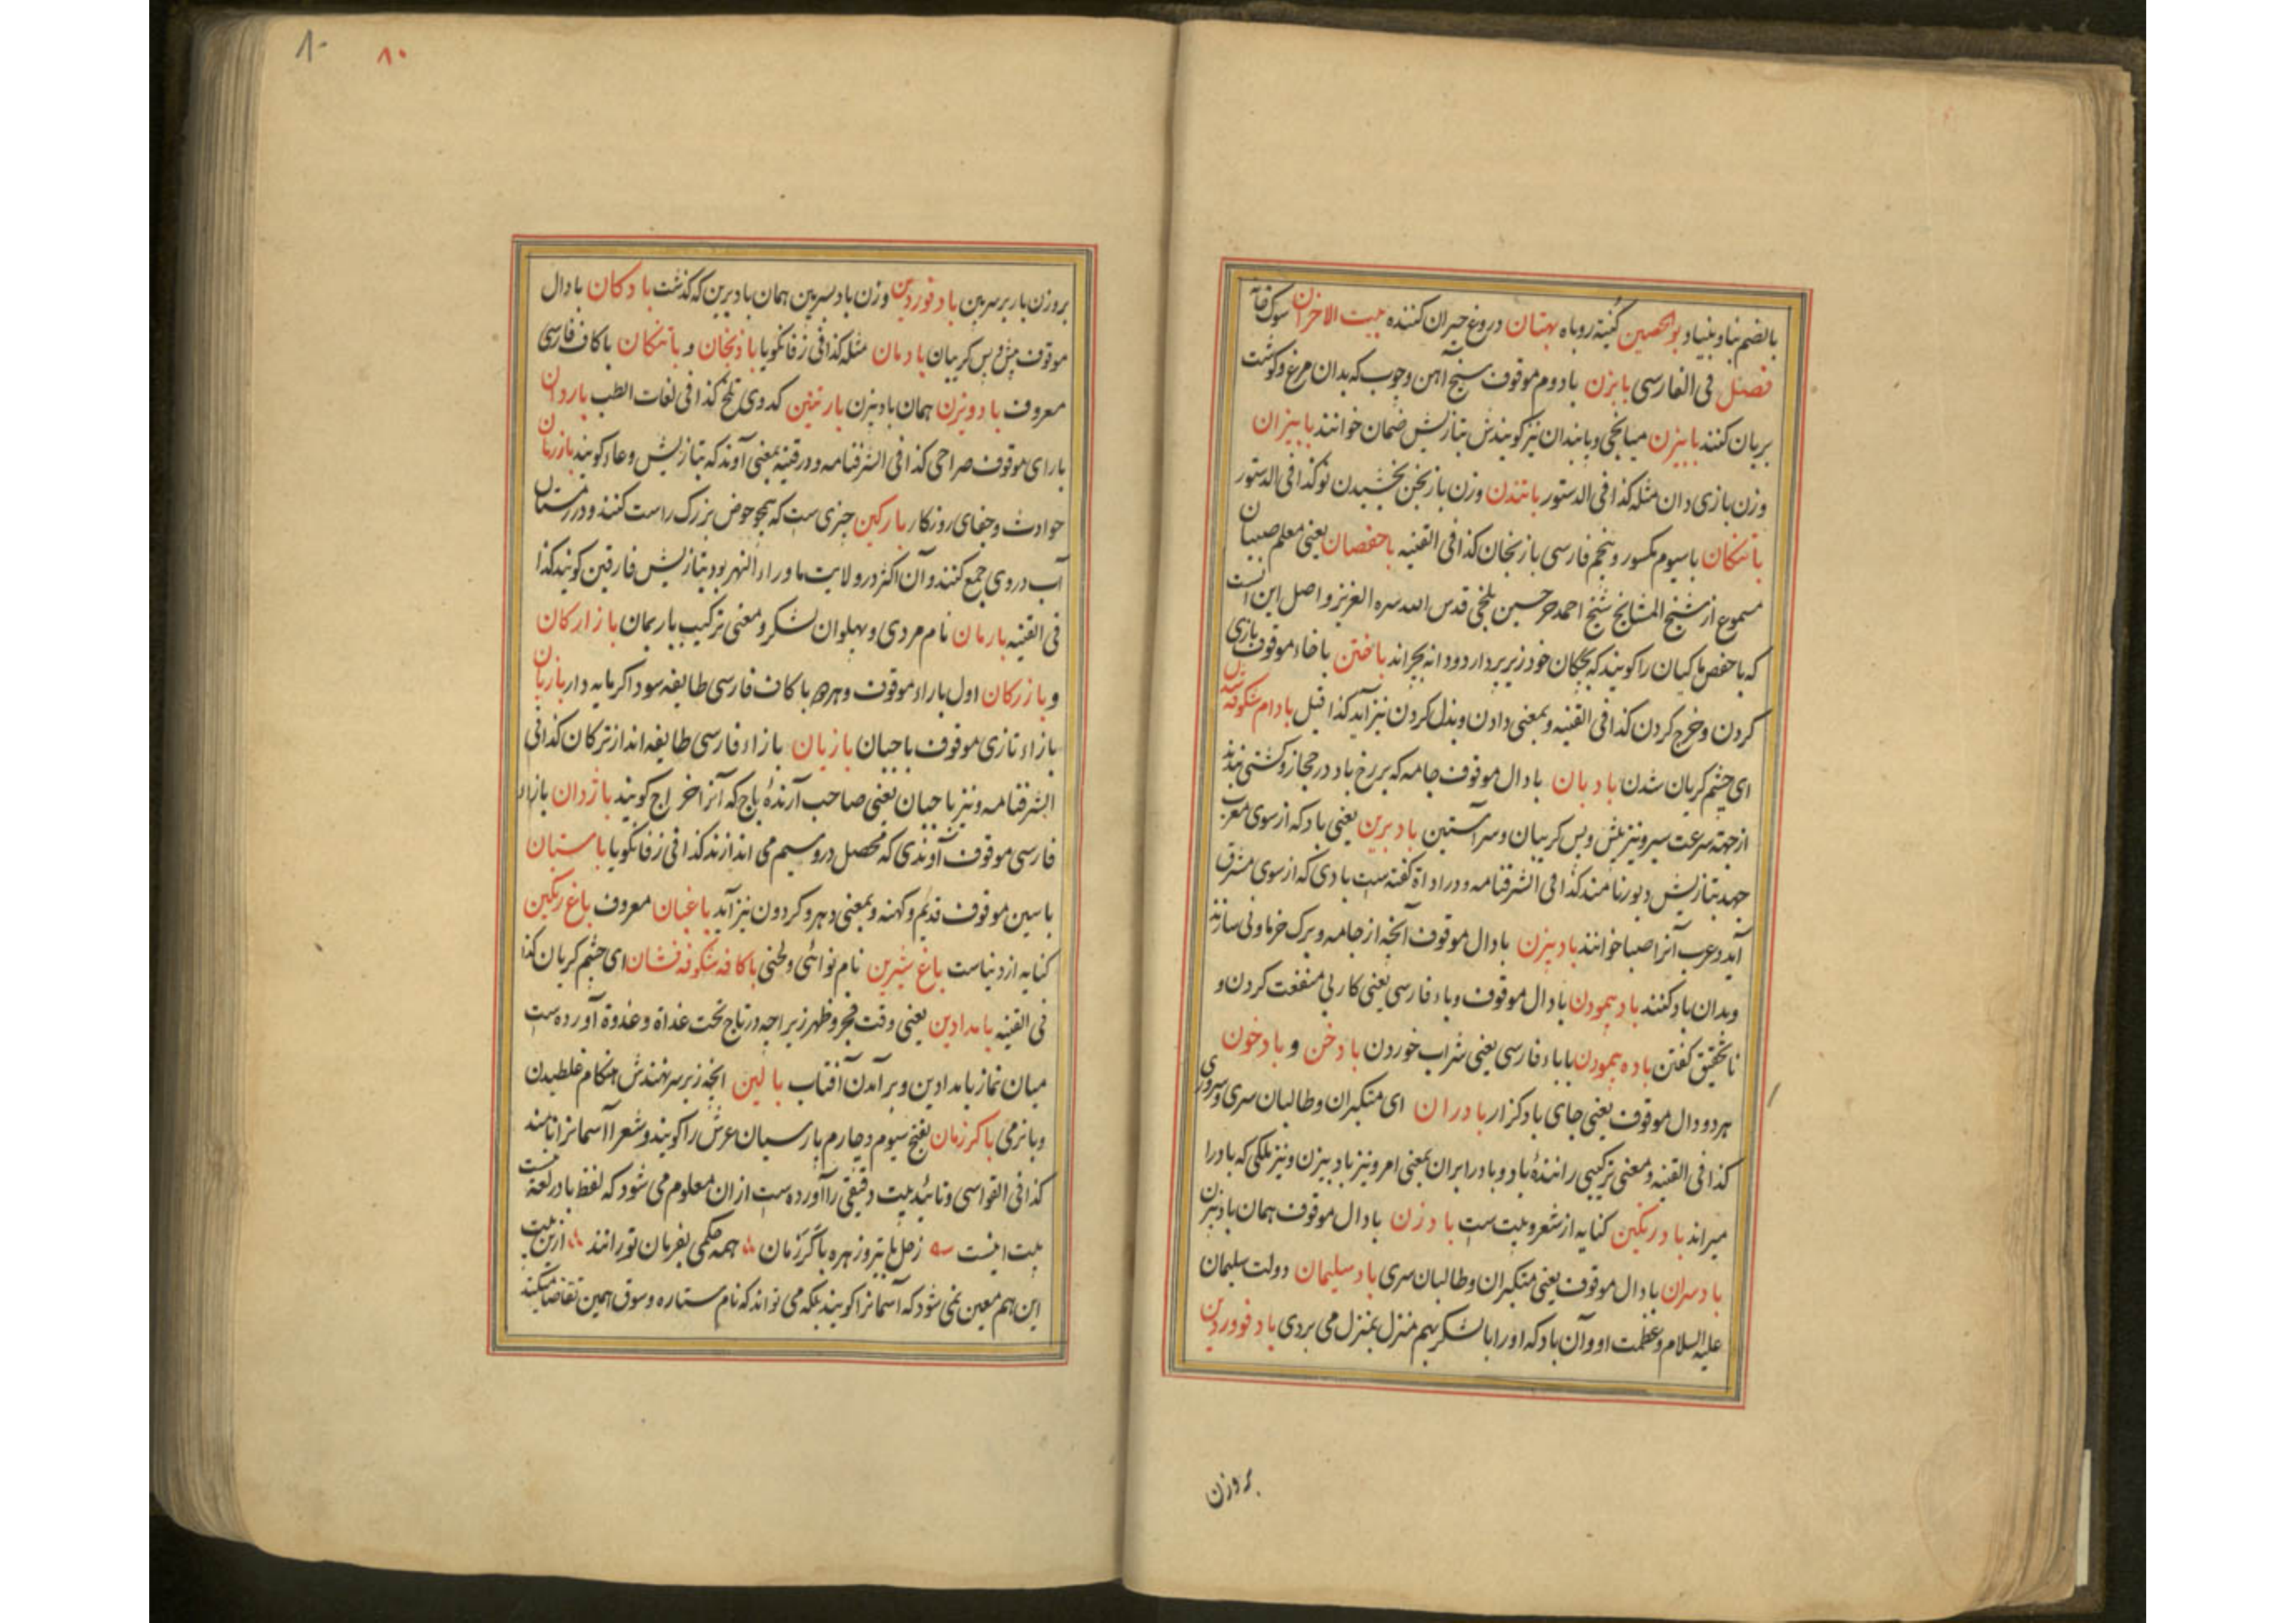 بالضم بنا و بنیاد بوالحصین کنیة روباه بهتان دروغ حیران کننده بیت الاحزان سوک خانه
فصل فی الفارسی بابزن با دوم موقوف سیخ آهن و چوب که بدان مرغ و کوشت
بریان کنند بابیزن میانجی و پابندان نیز کویندش بتازیش ضمان خوانند بابیزان
وزن بازی دان مثله کذا فی الدستور باتندن وزن بخشیدن نو کذا فی الدستور
باتنکان با سیوم مکسور و پنجم فارسی بازنجان کذا فی القنیه باحفصان یعنی معلم صبیان
مسموع از شیخ المشایخ شیخ احمد حسین بلخی قدس الله سره العزیز و اصل این انست
که باحفص ماکیان را کویند که بچکان خود زیر پر دارد و دانه بچراند باختن با خاء موقوف بازی
کردن و خرج کردن کذا فی القنیه و بمعنی دادن و بذل کردن نیز آید کذا قیل بادام شکوفه شدن
ای چشم کریان شدن بادبان با دال موقوف جامه که بر رخ باد در جهاز و کشتی بندند
از جهته سرعت سیر و نیز پیش و پس کریبان و سر آستین بادبرین یعنی باد که از سوی مغرب
جهد بتازیش دبور نامند کذا فی الشرفنامه و در اداة کفته ست بادی که از سوی مشرق
آید و عرب آنرا صبا خوانند بادبیزن با دال موقوف آنچه از جامه و برک خرما و نی سازند
و بدان باد کنند باد پیمودن با دال موقوف و باء فارسی یعنی کار بی منفعت کردن و
نا تحقیق کفتن باده پیمودن با باء فارسی یعنی شراب خوردن بادخن و بادخون
هر دو دال موقوف یعنی جای بادکزار بادران ای متکبران و طالبان سری و سروری
کذا فی القنیه و معنی ترکیبی رانندهٔ باد و باد را بران بمعنی امر و نیز بادبیزن و نیز ملکی که باد را
میراند باد رنکین کنایه از شعر و بیت ست بادزن با دال موقوف همان بادبیزن
بادسران با دال موقوف یعنی متکبران و طالبان سری باد سلیمان دولت سلیمان
علیه السلام و عظمت او و آن باد که او را با لشکر بهم منزل بمنزل می بردی باد فووردین
بروزن
۸۰ ۸۰
بروزن بار برسرین باد فوردین وزن باد بسرین همان بادبرین که کذشت بادکان با دال
موقوف پیش و پس کریبان بادمان مثله کذا فی زفانکویا بادنجان و باتنکان با کاف فارسی
معروف بادویزن همان بادبیزن بارنین کدوی تلخ کذا فی لغات الطب باردان
با رای موقوف صراحی کذا فی الشرفنامه و در قنیه بمعنی آوند که بتازیش وعاء کویند بارزمان
حوادث و جفای روزکار بارکین چیزی ست که همچو حوض بزرک راست کنند و در زمستان
آب در وی جمع کنند و آن اکثر در ولایت ماوراء النهر بود بتازیش فارقین کویند کذا
فی القنیه بارمان نام مردی و پهلوان لشکر و معنی ترکیب بار بمان بازارکان
و بازرکان اول با راء موقوف و هر دو با کاف فارسی طایفه سوداکر مایه دار بازبان
با زاء تازی موقوف با حبان بازیان با زاء فارسی طایفه اند از ترکان کذا فی
الشرفنامه و نیز با حبان یعنی صاحب آرندهٔ باج که آنرا خراج کویند باژدان با زاء
فارسی موقوف آوندی که محصل درو سیم می اندازند کذا فی زفانکویا باستان
با سین موقوف قدیم و کهنه و بمعنی دهر و کردون نیز آید باغبان معروف باغ رنکین
کنایه از دنیاست باغ شیرین نام نوائی و لحنی باکافه شکوفه فشان ای چشم کریان کذا
فی القنیه بامدادین یعنی وقت فجر و ظهر زیرا چه در تاج تحت غداة و غدوة آورده ست
میان نماز بامدادین و بر آمدن آفتاب بالین انچه زیر سر نهندش هنکام غلطیدن
و بانرمی باکرزمان بفتح سیوم و چهارم پارسیان عرش را کویند و شعرا آسمانرا نامند
کذا فی القواسی و تائید بیت دقیقی را آورده ست ازان معلوم می شود که لفظ با در لغت نیست
بیت اینست زحل با تیر و زهره با کرزمان همه حکمی بفرمان تو رانند ازین بیت
این هم معین نمی شود که آسمانرا کویند بلکه می تواند که نام ستاره و سوق همین تقاضا میکند